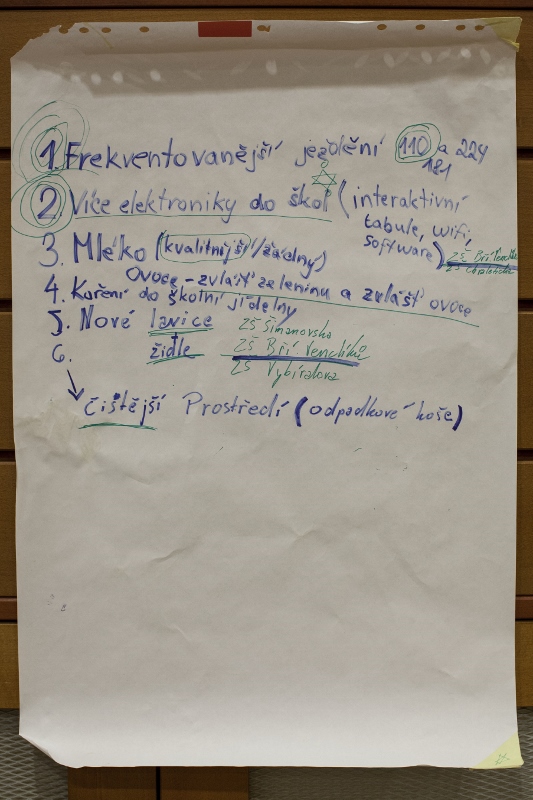 1. Frekventovanější ježdění 110 a 224
181
2. Více elektroniky do škol (interaktivní
tabule, wifi,
software) ZŠ Bří Venclíků
3. Mléko (kvalitnější/žádný)
Ovoce - zvlášť zeleninu a zvlášť ovoce
4. Koření do školní jídelny
5. Nové lavice ZŠ Šimanovská
6. židle ZŠ Bří Venclíků
ZŠ Vybíralova
čistější Prostředí (odpadkové koše)